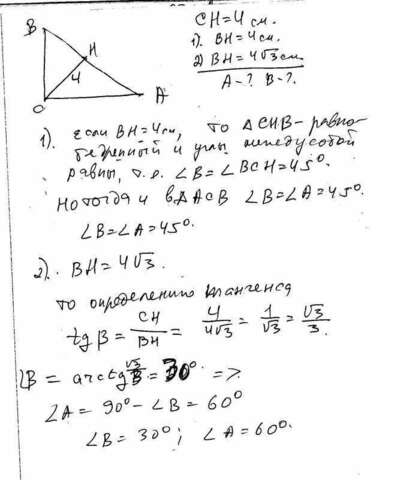 B
H
4
C
A
CH = 4 см.
1). BH = 4 см.
2) BH = 4√3 см.
A - ? B - ?
1). если BH = 4 см, то ΔCHB - равно-
бедренный и углы между собой
равны, т.е. ∠B = ∠BCH = 45°.
Но тогда и в ΔACB ∠B = ∠A = 45°
∠B = ∠A = 45°.
2). BH = 4√3.
по определению тангенса
tg B = CH/BH = 4/4√3 = 1/√3 = √3/3.
∠B = arctg √3/3 = 30° =>
∠A = 90° - ∠B = 60°
∠B = 30°; ∠A = 60°.